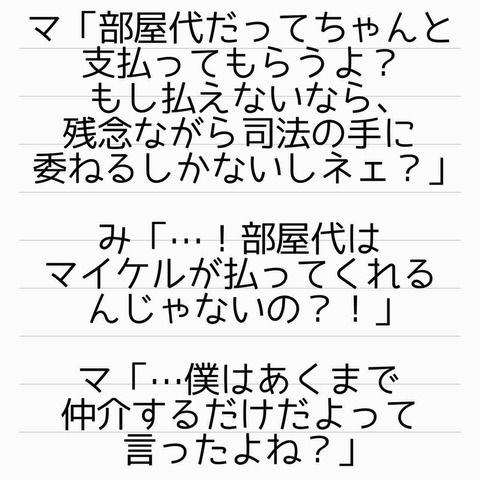 マ「部屋代だってちゃんと
支払ってもらうよ？
もし払えないなら、
残念ながら司法の手に
委ねるしかないしネェ？」
み「…！部屋代は
マイケルが払ってくれる
んじゃないの？！」
マ「…僕はあくまで
仲介するだけだよって
言ったよね？」